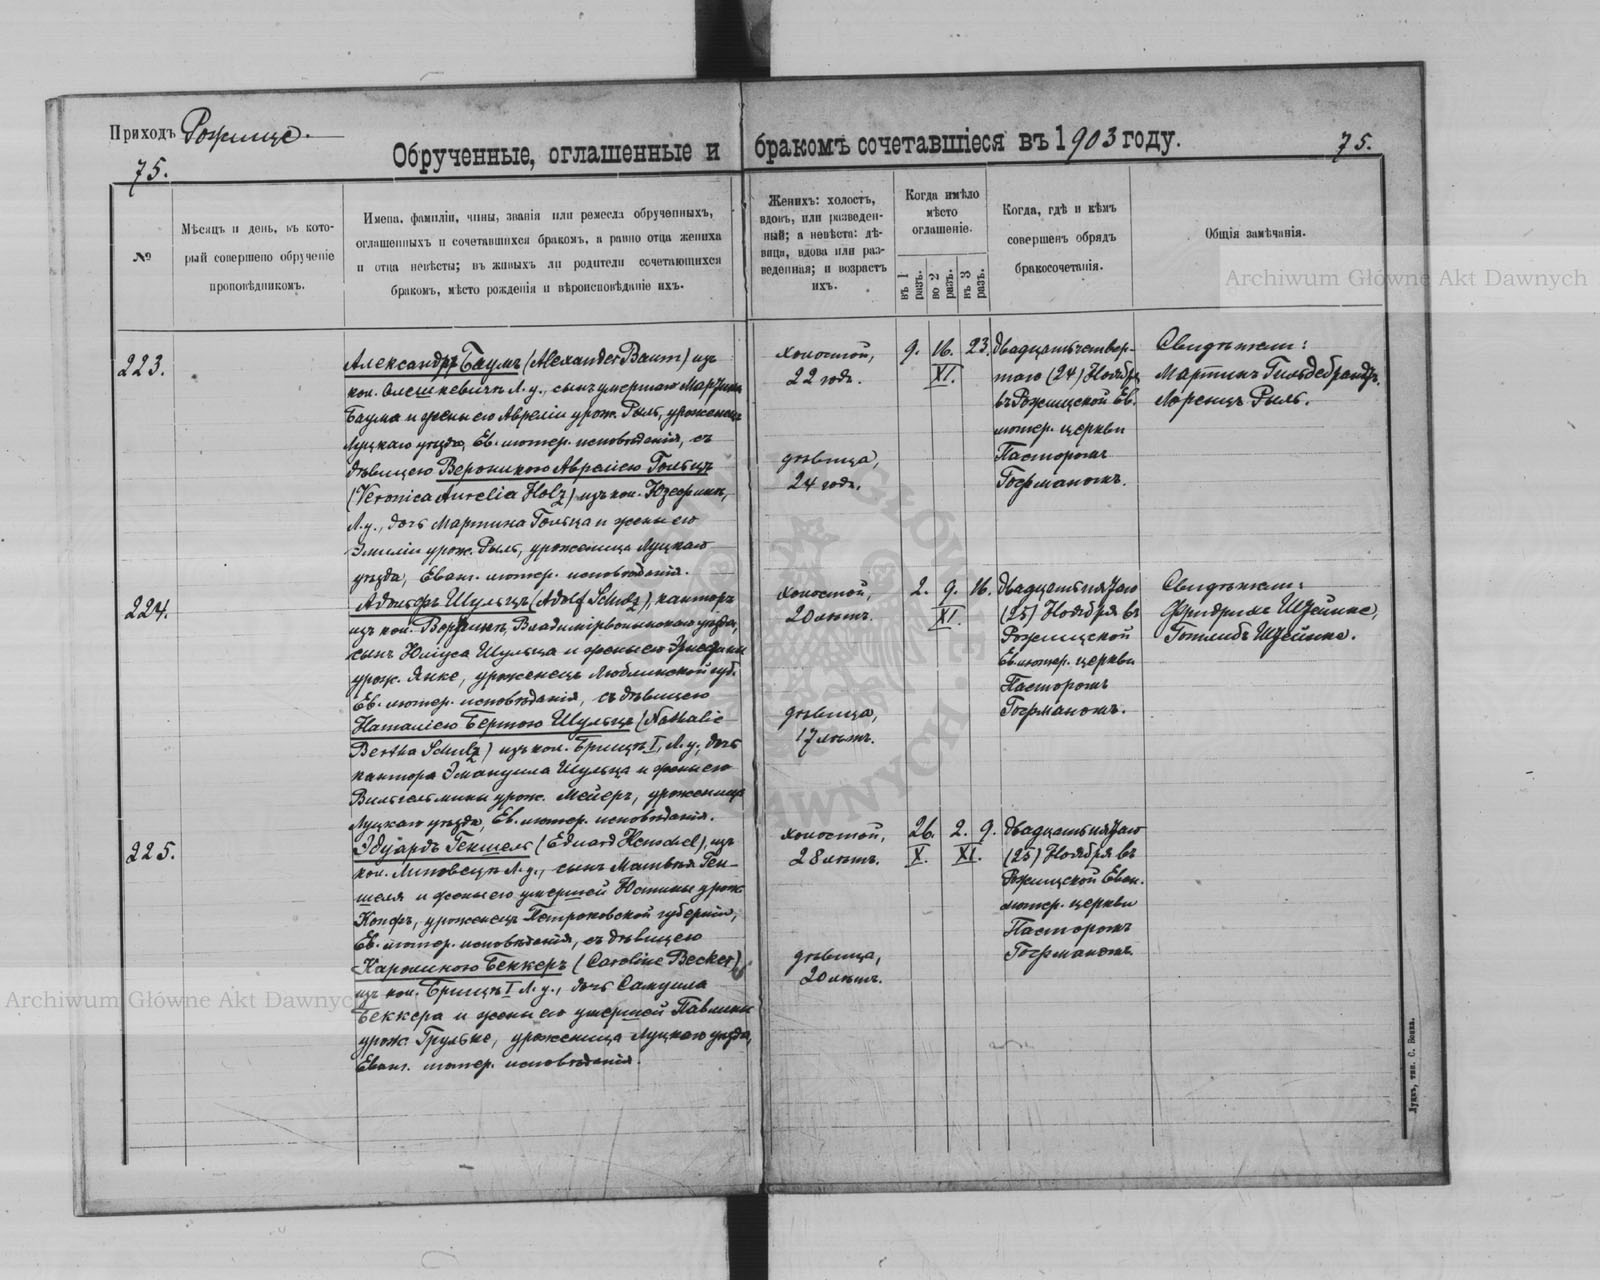 Приходъ Рожище.
75.
Обрученные, оглашенные и бракомъ сочетавшіеся въ 1903 году.
75.
№
Мѣсяцъ и день, въ кото-
рый совершено обрученіе
проповѣдникомъ.
Имена, фамиліи, чины, званія или ремесла обрученныхъ,
оглашенныхъ и сочетавшихся бракомъ, а равно отца жениха
и отца невѣсты; въ живыхъ ли родители сочетающихся
бракомъ, мѣсто рожденія и вѣроисповѣданіе ихъ.
Женихъ: холостъ,
вдовъ, или разведен-
ный; а невѣста: дѣ-
вица, вдова или раз-
веденная; и возрастъ
ихъ.
Когда имѣло
мѣсто
оглашеніе.
въ 1
разъ.
во 2
разъ.
въ 3
разъ.
Когда, гдѣ и кѣмъ
совершенъ обрядъ
бракосочетанія.
Общія замѣчанія.
223.
Александръ Баумъ (Alexander Baum) изъ
кол. Олешкевичъ Л. у., сынъ умершаго Мартина
Баума и жены его Авреліи урож. Рыль, уроженецъ
Луцкаго уѣзда, Ев. лютер. исповѣданія, съ
дѣвицею Вероникою Авреліею Гольцъ
(Veronica Aurelia Holz) изъ кол. Юзефинъ,
Л. у., дочь Мартина Гольца и жены его
Эмиліи урож. Рыль, уроженица Луцкаго
уѣзда, Еванг. лютер. исповѣданія.
холостой,
22 годъ.
дѣвица,
24 годъ.
9. 16. 23.
XI.
Двадцатьчетвер-
таго (24) Ноября
въ Рожищской Ев.
лютер. церкви
Пасторомъ
Гофманомъ.
Свидѣтели:
Мартинъ Гильдебрандъ,
Лоренцъ Рыль.
224.
Адольфъ Шульцъ (Adolf Schulz), канторъ
изъ кол. Владимірволынскаго уѣзда,
сынъ Юліуса Шульца и жены его
урож. Янке, уроженецъ Люблинской губ.
Ев. лютер. исповѣданія, съ дѣвицею
Наталіею Бертою Шульцъ (Nathalie
Bertha Schulz) изъ кол. Брищъ I, Л. у., дочь
кантора Эмануила Шульца и жены его
Вильгельмины урож. Мейеръ, уроженица
Луцкаго уѣзда, Ев. лютер. исповѣданія.
холостой,
20 лѣтъ.
дѣвица,
17 лѣтъ.
2. 9. 16.
XI.
Двадцатьпятаго
(25) Ноября въ
Рожищской
Ев. лютер. церкви
Пасторомъ
Гофманомъ.
Свидѣтели:
Фридрихъ Штейнке,
Готлибъ Штейнке.
225.
Эдуардъ Геншель (Eduard Henschel), изъ
кол. Липовецъ Л. у., сынъ Матвѣя Ген-
шеля и жены его умершей Юстины урож.
Копфъ, уроженецъ Петроковской губерніи,
Ев. лютер. исповѣданія, съ дѣвицею
Каролиною Беккеръ (Caroline Becker)
изъ кол. Брищъ I Л. у., дочь Самуила
Беккера и жены его умершей Павлины
урож. Грульке, уроженица Луцкаго уѣзда,
Еванг. лютер. исповѣданія.
холостой,
28 лѣтъ.
дѣвица,
20 лѣтъ.
26. 2. 9.
X. XI.
Двадцатьпятаго
(25) Ноября въ
Рожищской Еван.
лютер. церкви
Пасторомъ
Гофманомъ.
Луцкъ, тип. С. Бенка.
Archiwum Główne Akt Dawnych
Archiwum Główne Akt Dawnych